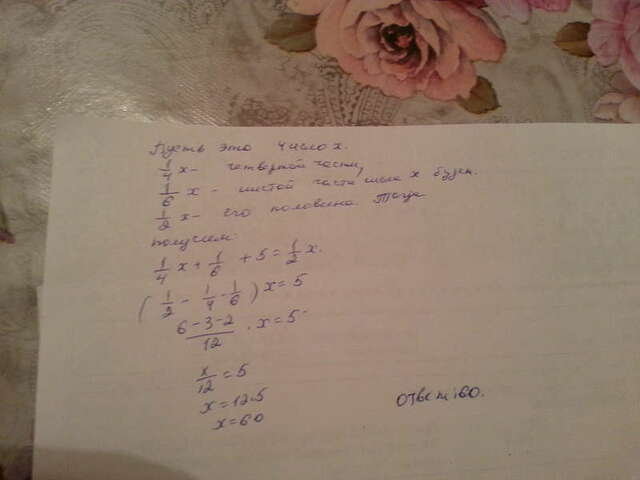 Пусть это число x.
1/4 x - четвертой части,
1/6 x - шестой части числа x будет.
1/2 x - его половина. Тогда
получаем:
1/4 x + 1/6 + 5 = 1/2 x.
(1/2 - 1/4 - 1/6) x = 5
6-3-2/12 · x = 5
x/12 = 5
x = 12·5
x = 60
ответ: 60.